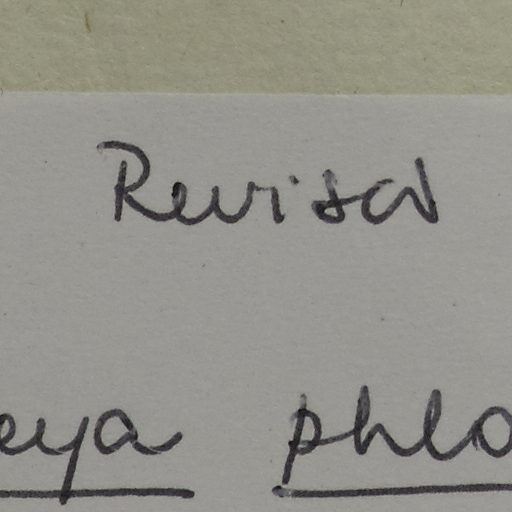 Revised
eya phlo